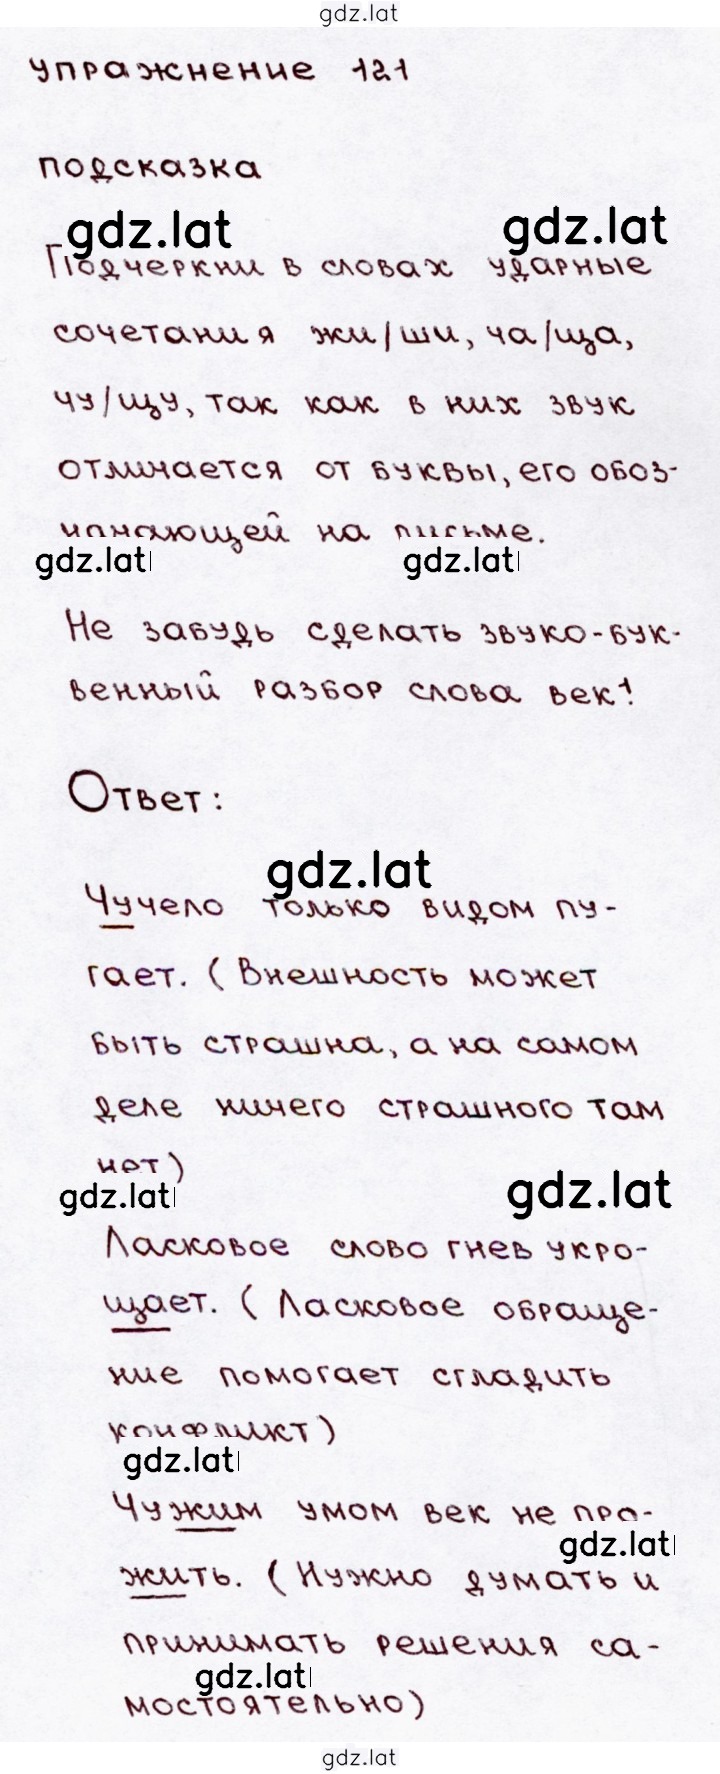 gdz.lat
упражнение 121
подсказка
gdz.lat gdz.lat
Подчеркни в словах ударные
сочетания жи/ши, ча/ща,
чу/щу, так как в них звук
отличается от буквы, его обоз-
начающей на письме.
gdz.lat gdz.lat
Не забудь сделать звуко-бук-
венный разбор слова век!
Ответ:
gdz.lat
Чучело только видом пу-
гает. (Внешность может
быть страшна, а на самом
деле ничего страшного там
нет)
gdz.lat gdz.lat
Ласковое слово гнев укро-
щает. (Ласковое обраще-
ние помогает сгладить
конфликт)
gdz.lat
Чужим умом век не про-
gdz.lat
жить. (Нужно думать и
принимать решения са-
gdz.lat
мостоятельно)
gdz.lat